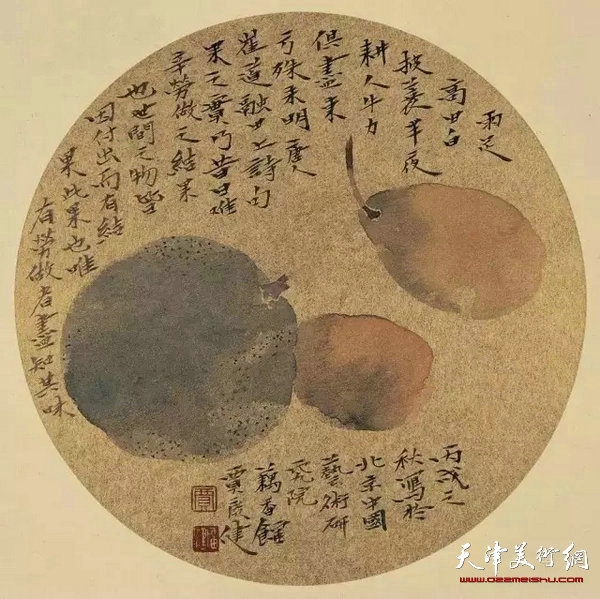 雨足
高田白
披蓑半夜
耕人牛力
俱盡東
方殊未明唐人
崔道融田上詩句
果之實乃昔日唯
辛勞做之結果
也世間之物皆
因付出而有結
果此果也唯
有勞做者盡知其味
丙戌之
秋寫於
北京中國
藝術研
究院
藕香館
賈廣健
天津美術網
www.022meishu.com